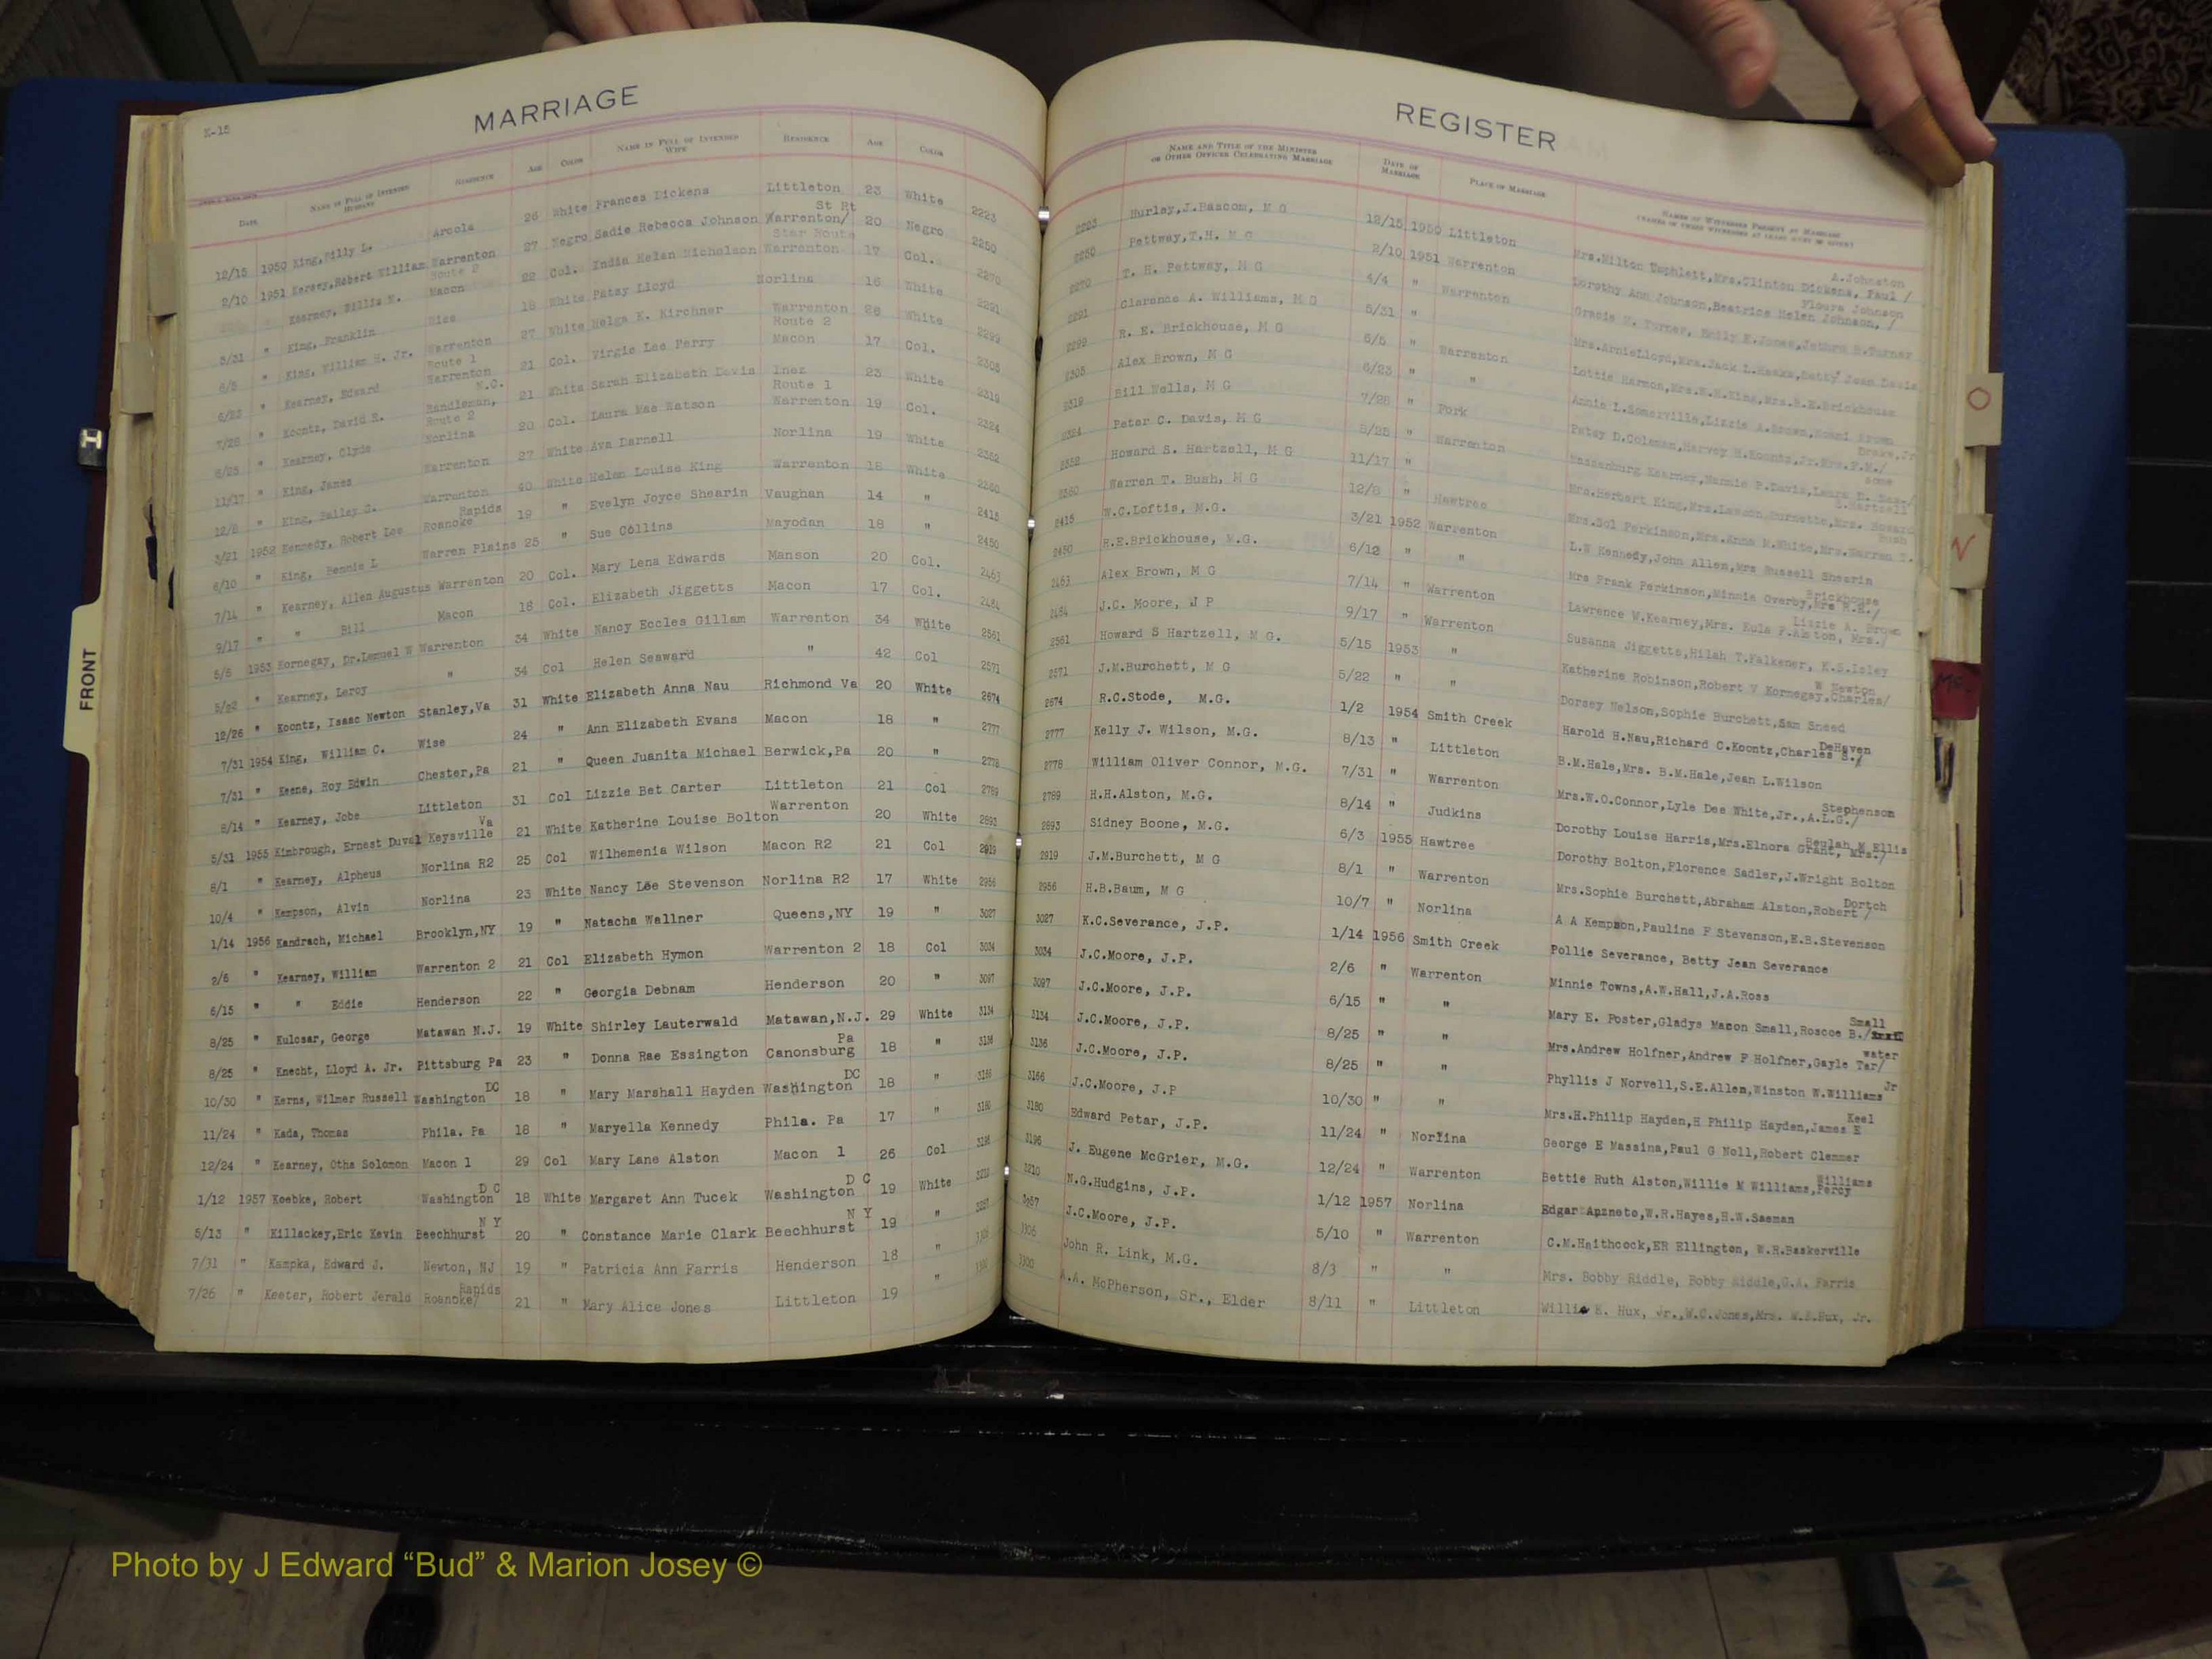 MARRIAGE
K-15
DATE NAME IN FULL OF INTENDED HUSBAND RESIDENCE AGE COLOR NAME IN FULL OF INTENDED WIFE RESIDENCE AGE COLOR
12/15 1950 King, Billy L. Arcola 26 White Frances Dickens Littleton 23 White 2223
2/10 1951 Kersey, Robert William Warrenton Route 2 27 Negro Sadie Rebecca Johnson Warrenton/ St Rt 20 Negro 2250
" Kearney, Willis M. Macon 22 Col. India Helen Nicholson Warrenton Star Route 17 Col. 2270
5/31 " King, Franklin Wise 18 White Patsy Lloyd Norlina 16 White 2291
6/5 " King, William H. Jr. Warrenton 27 White Helga E. Kirchner Warrenton 28 White 2299
6/23 " Kearney, Edward Route 1 Warrenton 21 Col. Virgie Lee Perry Route 2 Macon 17 Col. 2305
7/28 " Koontz, David R. Randleman, N.C. 21 White Sarah Elizabeth Davis Inez 23 White 2319
8/25 " Kearney, Clyde Route 2 Norlina 20 Col. Laura Mae Watson Route 1 Warrenton 19 Col. 2324
11/17 " King, James Warrenton 27 White Ava Darnell Norlina 19 White 2352
12/8 " King, Bailey J. Warrenton 40 White Helen Louise King Warrenton 18 White 2360
3/21 1952 Kennedy, Robert Lee Roanoke Rapids 19 " Evelyn Joyce Shearin Vaughan 14 " 2415
6/10 " King, Bennie L Warren Plains 25 " Sue Collins Mayodan 18 " 2450
7/14 " Kearney, Allen Augustus Warrenton 20 Col. Mary Lena Edwards Manson 20 Col. 2463
9/17 " " Bill Macon 18 Col. Elizabeth Jiggetts Macon 17 Col. 2484
5/5 1953 Kornegay, Dr.Lemuel W Warrenton 34 White Nancy Eccles Gillam Warrenton 34 White 2561
5/22 " Kearney, Leroy " 34 Col Helen Seaward " 42 Col 2571
12/26 " Koontz, Isaac Newton Stanley,Va 31 White Elizabeth Anna Nau Richmond Va 20 White 2674
7/31 1954 King, William C. Wise 24 " Ann Elizabeth Evans Macon 18 " 2777
7/31 " Keene, Roy Edwin Chester,Pa 21 " Queen Juanita Michael Berwick,Pa 20 " 2778
8/14 " Kearney, Jobe Littleton 31 Col Lizzie Bet Carter Littleton 21 Col 2789
5/31 1955 Kimbrough, Ernest Duval Keysville Va 21 White Katherine Louise Bolton Warrenton 20 White 2893
8/1 " Kearney, Alpheus Norlina R2 25 Col Wilhemenia Wilson Macon R2 21 Col 2919
10/4 " Kempson, Alvin Norlina 23 White Nancy Lee Stevenson Norlina R2 17 White 2956
1/14 1956 Kandrach, Michael Brooklyn,NY 19 " Natacha Wallner Queens,NY 19 " 3027
2/6 " Kearney, William Warrenton 2 21 Col Elizabeth Hymon Warrenton 2 18 Col 3034
6/15 " " Eddie Henderson 22 " Georgia Debnam Henderson 20 " 3097
8/25 " Kulcsar, George Matawan N.J. 19 White Shirley Lauterwald Matawan,N.J. 29 White 3134
8/25 " Knecht, Lloyd A. Jr. Pittsburg Pa 23 " Donna Rae Essington Canonsburg Pa 18 " 3136
10/30 " Kerns, Wilmer Russell Washington DC 18 " Mary Marshall Hayden Washington DC 18 " 3166
11/24 " Kada, Thomas Phila. Pa 18 " Maryella Kennedy Phila. Pa 17 " 3180
12/24 " Kearney, Otha Solomon Macon 1 29 Col Mary Lane Alston Macon 1 26 Col 3196
1/12 1957 Koebke, Robert Washington D C 18 White Margaret Ann Tucek Washington D C 19 White 3210
5/13 " Killackey,Eric Kevin Beechhurst N Y 20 " Constance Marie Clark Beechhurst N Y 19 "
7/31 " Kampka, Edward J. Newton, NJ 19 " Patricia Ann Farris Henderson 18 "
7/26 " Keeter, Robert Jerald Roanoke/ Rapids 21 " Mary Alice Jones Littleton 19 "
REGISTER
NAME AND TITLE OF THE MINISTER OR OTHER OFFICER CELEBRATING MARRIAGE DATE OF MARRIAGE PLACE OF MARRIAGE NAMES OF WITNESSES PRESENT AT MARRIAGE
2223 Hurley,J.Bascom, M G 12/15 1950 Littleton Mrs.Milton Umphlett,Mrs.Clinton Dickens, Paul / A.Johnston
2250 Pettway,T.H. M G 2/10 1951 Warrenton Dorothy Ann Johnson,Beatrice Helen Johnson, / Floura Johnson
2270 T. H. Pettway, M G 4/4 " Warrenton Gracie M. Turner, Emily E.Jones,Jethro B.Turner
2291 Clarence A. Williams, M G 5/31 "
2299 R. E. Brickhouse, M G 6/5 " Warrenton Lottie Harmon,Mrs.W.H.King,Mrs.R.E.Brickhouse
2305 Alex Brown, M G 6/23 " " Annie L.Somerville,Lizzie A.Brown,
2319 Bill Wells, M G 7/28 " Fork Patsy D.Coleman,Harvey H.Koontz,Jr.
2324 Peter C. Davis, M G 8/25 " Warrenton
2352 Howard S. Hartzell, M G 11/17 "
2360 Warren T. Bush, M G 12/8 " Hawtree Mrs.Sol Perkinson,Mrs.Anna M.White,Mrs.Warren T. Bush
2415 W.C.Loftis, M.G. 3/21 1952 Warrenton L.W Kennedy,John Allen,Mrs Russell Shearin
2450 R.E.Brickhouse, M.G. 6/12 " " Mrs Frank Perkinson,Minnie Overby,Mrs R.E./ Brickhouse
2463 Alex Brown, M G 7/14 " Warrenton Lawrence W.Kearney,Mrs. Eula P.Alston, Mrs./ Lizzie A. Brown
2484 J.C. Moore, J P 9/17 " Warrenton Susanna Jiggetts,Hilah T.Falkener, K.S.Isley
2561 Howard S Hartzell, M G. 5/15 1953 " Katherine Robinson,Robert V Kornegay,Charles/ W Newton
2571 J.M.Burchett, M G 5/22 " " Dorsey Nelson,Sophie Burchett,Sam Sneed
2674 R.C.Stode, M.G. 1/2 1954 Smith Creek Harold H.Nau,Richard C.Koontz,Charles B./ DeHaven
2777 Kelly J. Wilson, M.G. 8/13 " Littleton B.M.Hale,Mrs. B.M.Hale,Jean L.Wilson
2778 William Oliver Connor, M.G. 7/31 " Warrenton Mrs.W.O.Connor,Lyle Dee White,Jr.,A.L.G./ Stephenson
2789 H.H.Alston, M.G. 8/14 " Judkins Dorothy Louise Harris,Mrs.Elnora Grant, Mrs./ Beulah M Ellis
2893 Sidney Boone, M.G. 6/3 1955 Hawtree Dorothy Bolton,Florence Sadler,J.Wright Bolton
2919 J.M.Burchett, M G 8/1 " Warrenton Mrs.Sophie Burchett,Abraham Alston,Robert / Dortch
2956 H.B.Baum, M G 10/7 " Norlina A A Kempson,Pauline F Stevenson,E.B.Stevenson
3027 K.C.Severance, J.P. 1/14 1956 Smith Creek Pollie Severance, Betty Jean Severance
3034 J.C.Moore, J.P. 2/6 " Warrenton Minnie Towns,A.W.Hall,J.A.Ross
3097 J.C.Moore, J.P. 6/15 " " Mary E. Foster,Gladys Macon Small,Roscoe B./ Small
3134 J.C.Moore, J.P. 8/25 " " Mrs.Andrew Holfner,Andrew F Holfner,Gayle Tar/ water
3136 J.C.Moore, J.P. 8/25 " " Phyllis J Norvell,S.E.Allen,Winston W.Williams Jr
3166 J.C.Moore, J.P 10/30 " " Mrs.H.Philip Hayden,H Philip Hayden,James E Keel
3180 Edward Petar, J.P. 11/24 " Norlina George E Massina,Paul G Noll,Robert Clemmer
3196 J. Eugene McGrier, M.G. 12/24 " Warrenton Bettie Ruth Alston,Willie M Williams,Percy Williams
3210 N.G.Hudgins, J.P. 1/12 1957 Norlina Edgar Apzneto,W.R.Hayes,H.W.Saeman
3257 J.C.Moore, J.P. 5/10 " Warrenton C.M.Haithcock,ER Ellington, W.R.Baskerville
3305 John R. Link, M.G. 8/3 " " Mrs. Bobby Riddle, Bobby Riddle,G.A. Farris
3300 A.A. McPherson, Sr., Elder 8/11 " Littleton Willie E. Hux, Jr.,W.C.Jones,Mrs. W.E.Hux, Jr.
FRONT
O
N
Mc
Photo by J Edward “Bud” & Marion Josey ©